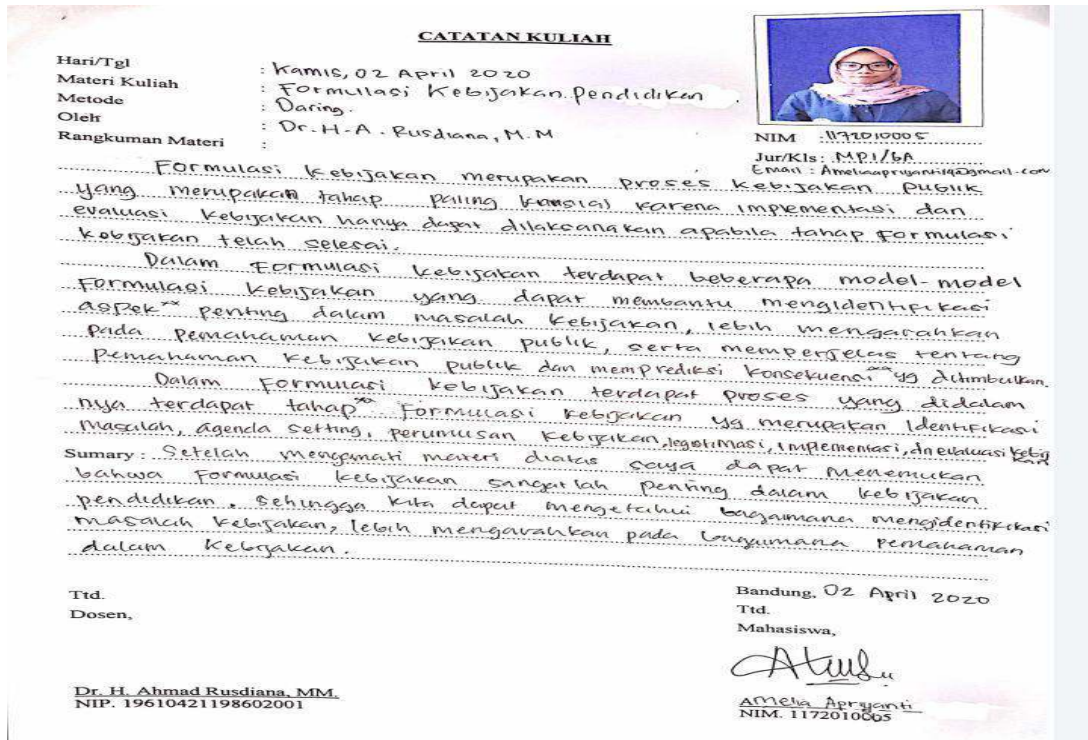 CATATAN KULIAH
Hari/Tgl : Kamis, 02 April 2020
Materi Kuliah : Formulasi Kebijakan Pendidikan
Metode : Daring.
Oleh : Dr. H. A. Rusdiana, M.M
Rangkuman Materi :
NIM : 1172010005
Jur/Kls : MPI/6A
Email : Ameliaapriyanti14@gmail.com
Formulasi kebijakan merupakan proses kebijakan publik
yang merupakan tahap paling karena implementasi dan
evaluasi kebijakan hanya dapat dilaksanakan apabila tahap formulasi
kebijakan telah selesai.
Dalam formulasi kebijakan terdapat beberapa model-model
Formulasi kebijakan yang dapat membantu mengidentifikasi
aspek" penting dalam masalah kebijakan, lebih mengarahkan
pada pemahaman kebijakan publik, serta memperjelas tentang
pemahaman kebijakan publik dan memprediksi konsekuensi" yg ditimbulkan.
Dalam Formulasi kebijakan terdapat proses yang didalam
nya terdapat tahap" Formulasi kebijakan yg merupakan Identifikasi
Masalah, agenda setting, perumusan kebijakan, legitimasi, implementasi, dn evaluasi kebijakan
Sumary : Setelah mengamati materi diatas saya dapat menemukan
bahwa formulasi kebijakan sangatlah penting dalam kebijakan
pendidikan, sehingga kita dapat mengetahui bagaimana mengidentifikasi
masalah kebijakan, lebih mengarahkan pada bagaimana pemahaman
dalam kebijakan.
Ttd.
Dosen,
Dr. H. Ahmad Rusdiana, MM.
NIP. 19610421198602001
Bandung, 02 April 2020
Ttd.
Mahasiswa,
Amelia Apriyanti
NIM. 1172010005